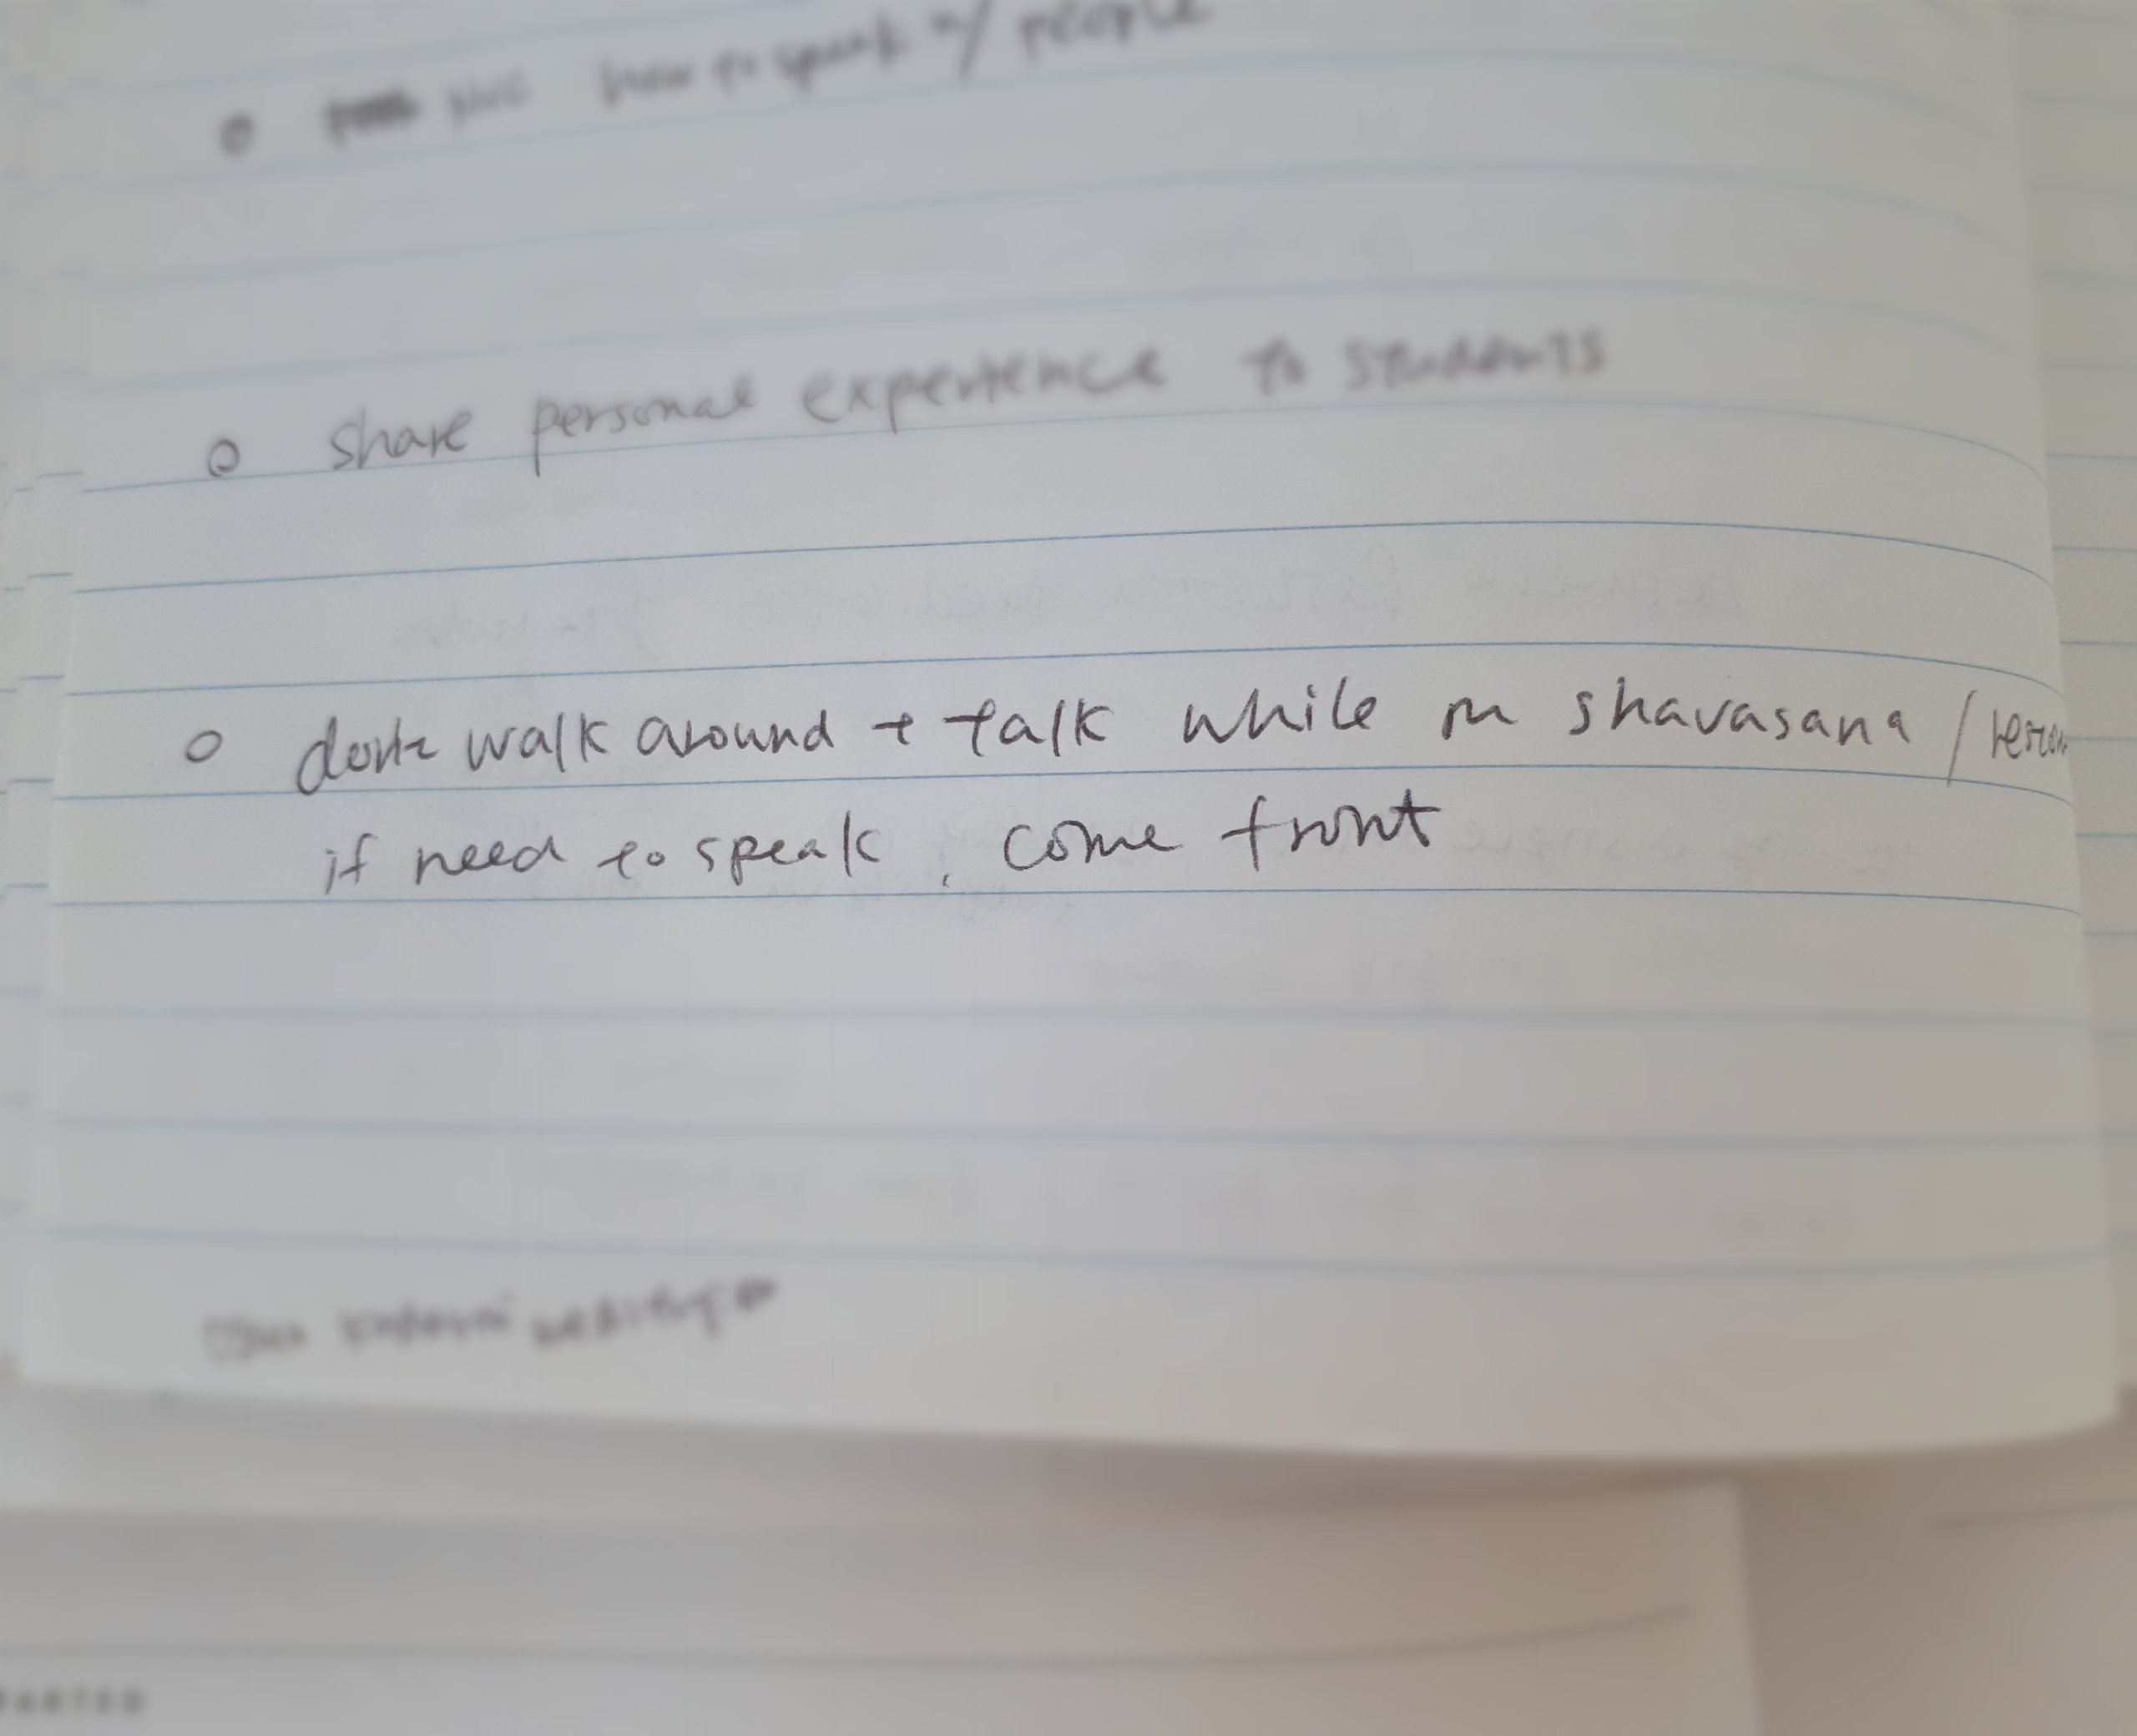 how to speak w/ people
share personal experience to students
dont walk around + talk while in shavasana /
if need to speak, come front